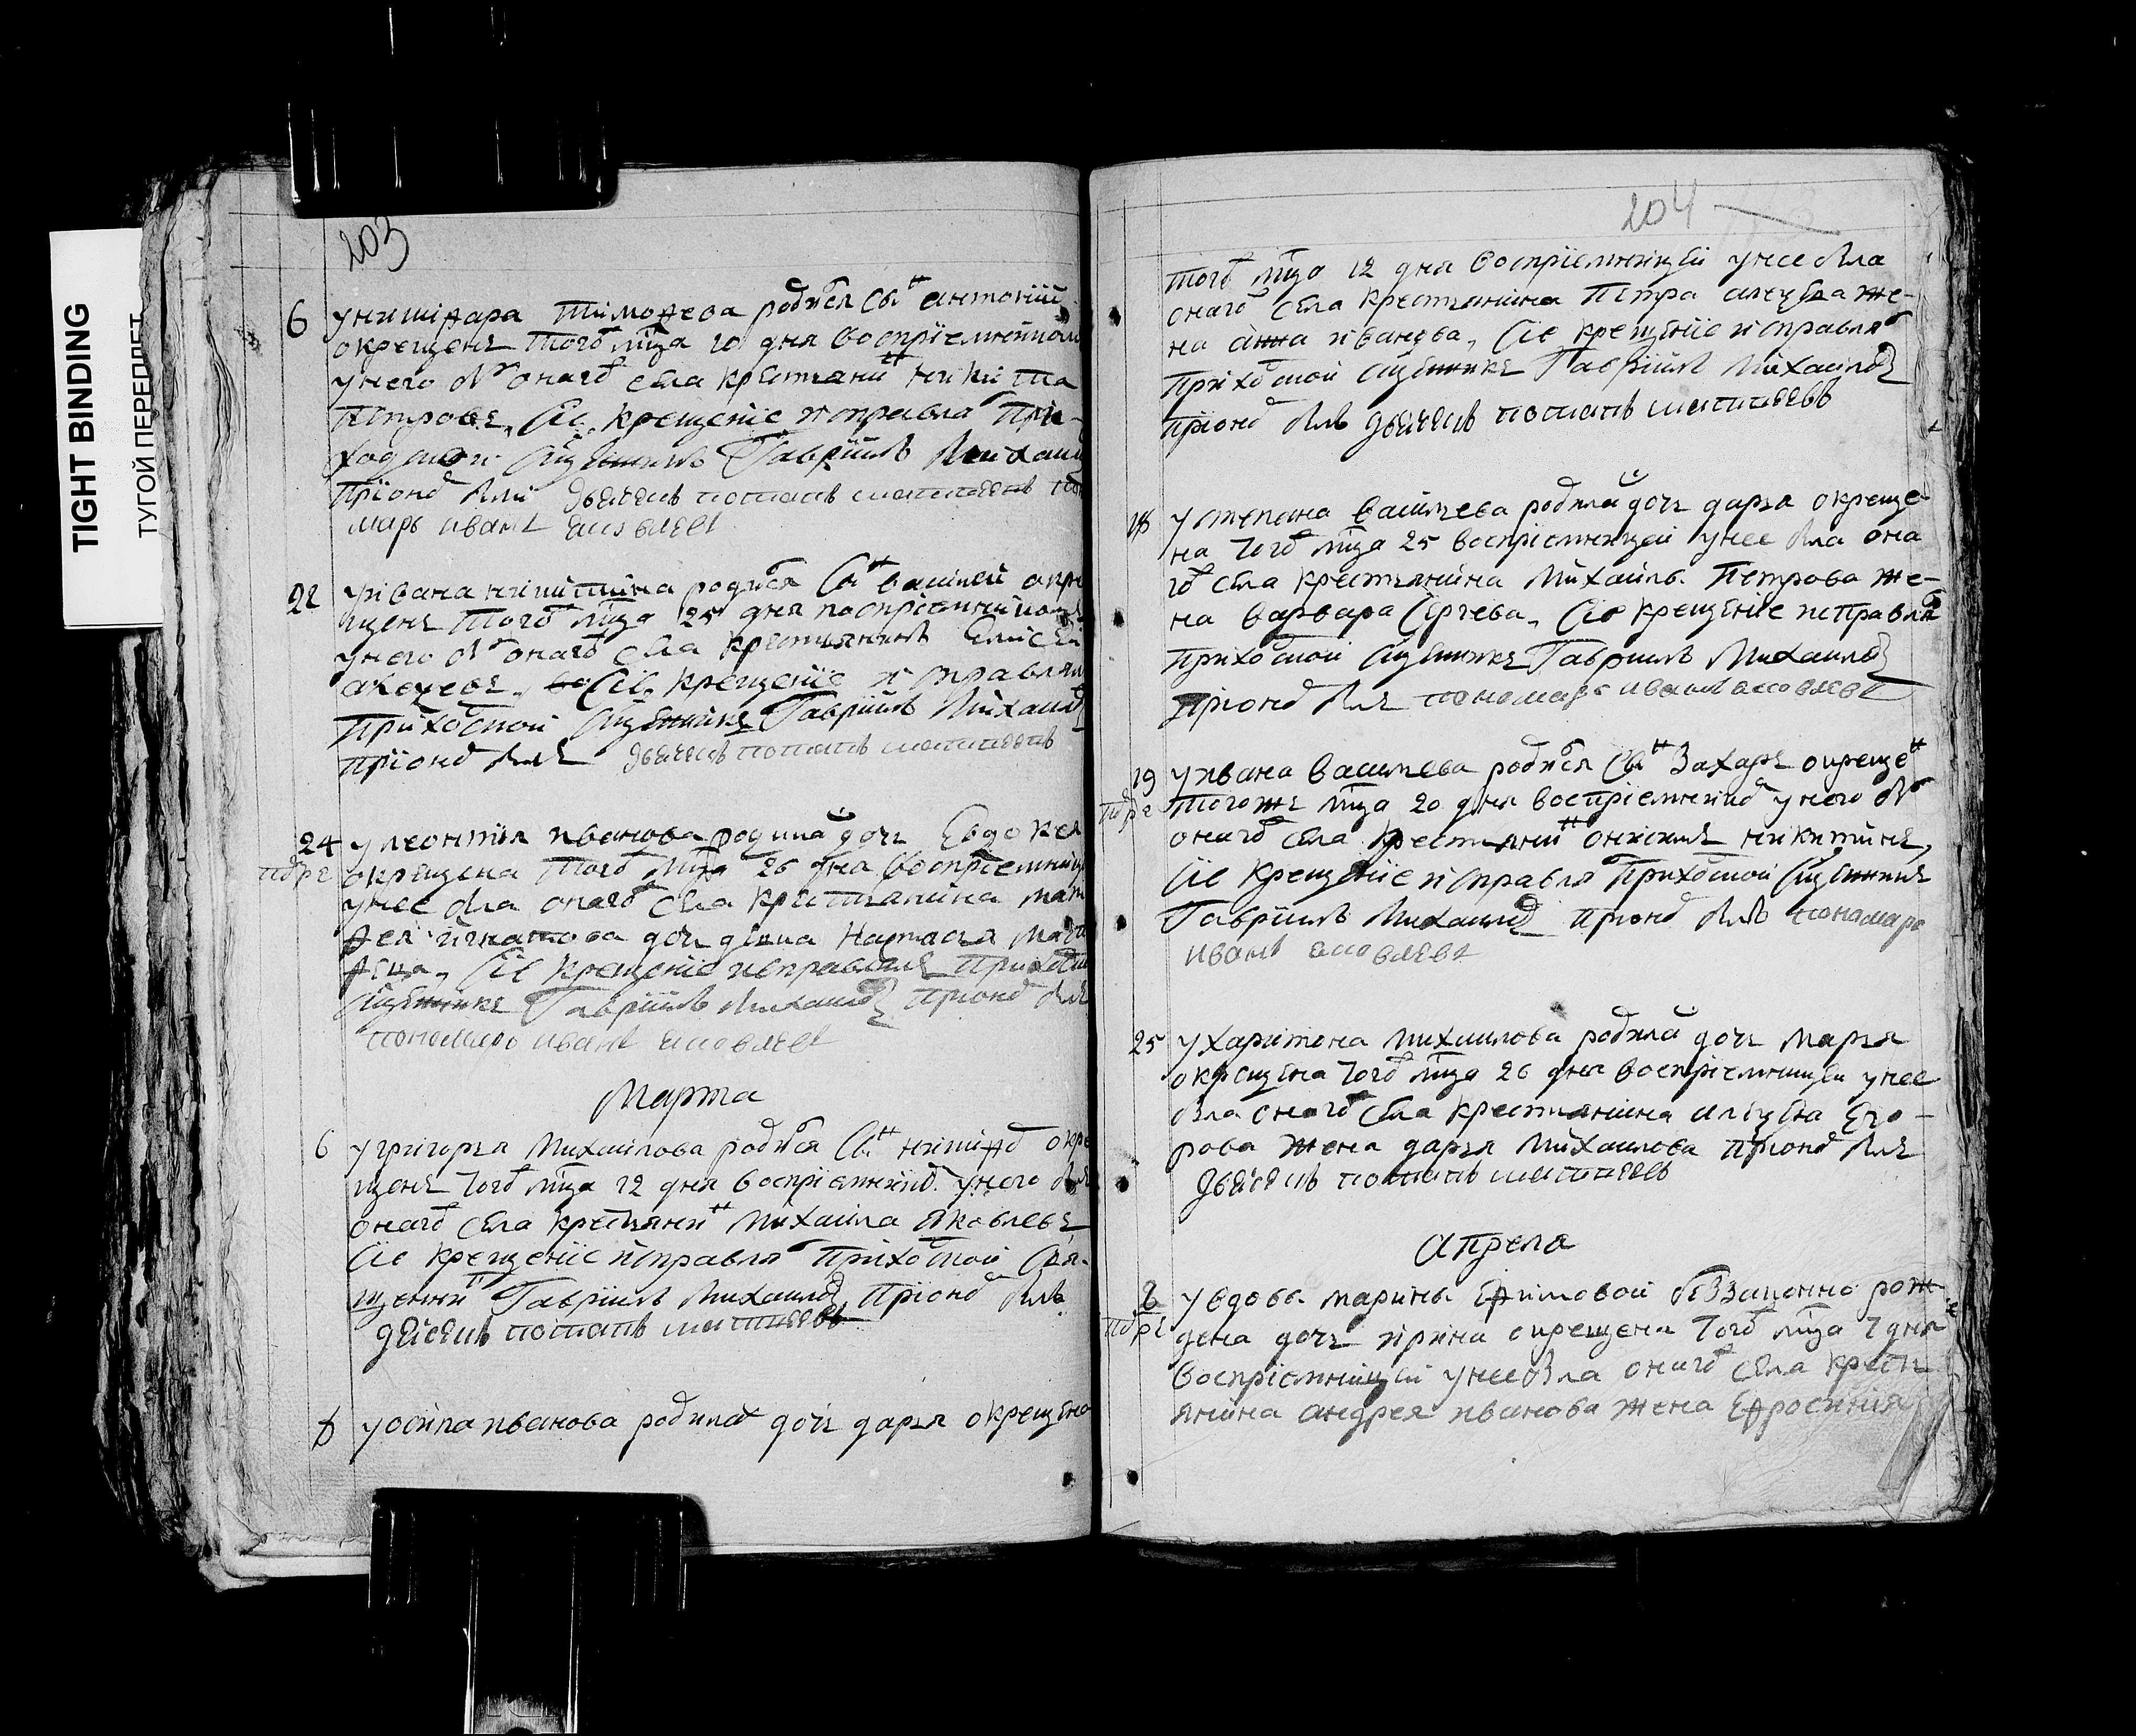 TIGHT BINDING
ТУГОЙ ПЕРЕПЛЕТ
203
6 у никифара тимофеева родися сынъ антоний
окрещенъ того мца 10 дня восприемником
у него былъ онаго села крестьянинъ никита
петровъ, сие крещение исправлялъ при-
ходской священникъ Гавриилъ Михаил
при оном былъ дьячекъ потапъ матвеевъ поно
марь иванъ яковлевъ
22 у ивана никитина родися сынъ василей окре
щенъ того мца 25 дня восприемником
у него былъ онаго села крестьянинъ Елисей
сие крещение исправлял
приходской священникъ Гавриилъ Михаил
при оном былъ дьячекъ потапъ матвеевъ
24 у леонтия иванова родилась дочь Евдокея
окрещена того мца 26 дня восприемниц
у нее была онаго села крестьянина мат
фея игнатова дочь девка Настасья мат
феева, сие крещение исправлялъ приходско
священникъ Гавриилъ Михаилов при оном былъ
пономарь иванъ яковлевъ
Марта
6 у григорья Михаилова родися сынъ никифоръ окре
щенъ того мца 12 дня восприемником у него былъ
онаго села крестьянинъ Михаила Яковлевъ
сие крещение исправлялъ приходской свя-
щенникъ Гавриилъ Михаилов при оном былъ
дьячекъ потапъ матвеевъ
8 у осипа иванова родилась дочь дарья окрещена
204
того мца 12 дня восприемницей у нее была
онаго села крестьянина Петра алексева же-
на анна иванова, сие крещение исправлялъ
приходской священникъ Гавриилъ Михаилов
при оном былъ дьячекъ потапъ матвеевъ
18 у степана васильева родилась дочь дарья окреще-
на того мца 25 восприемницей у нее была она
го села крестьянина Михаила Петрова же-
на варвара Сергева, сие крещение исправлялъ
приходской священникъ Гавриилъ Михаилов
при оном былъ пономарь иванъ яковлевъ
19 у ивана васильева родися сынъ Захаръ окрещенъ
тогожъ мца 20 дня восприемником у него былъ
онаго села крестьянинъ никитинъ,
сие крещение исправлялъ приходской священникъ
Гавриилъ Михаилов при оном былъ пономарь
иванъ яковлевъ
25 у харитона Михаилова родилась дочь марья
окрещена того мца 26 дня восприемницей у нее
была онаго села крестьянина алексея Его-
рова жена дарья Михаилова при оном былъ
дьячекъ потапъ матвеевъ
Апреля
у вдовы марины Ефимовой беззаконно рож-
дена дочь ирина окрещена того мца 7 дня
восприемницей у нее была онаго села кресть
янина андрея иванова жена Ефросиния